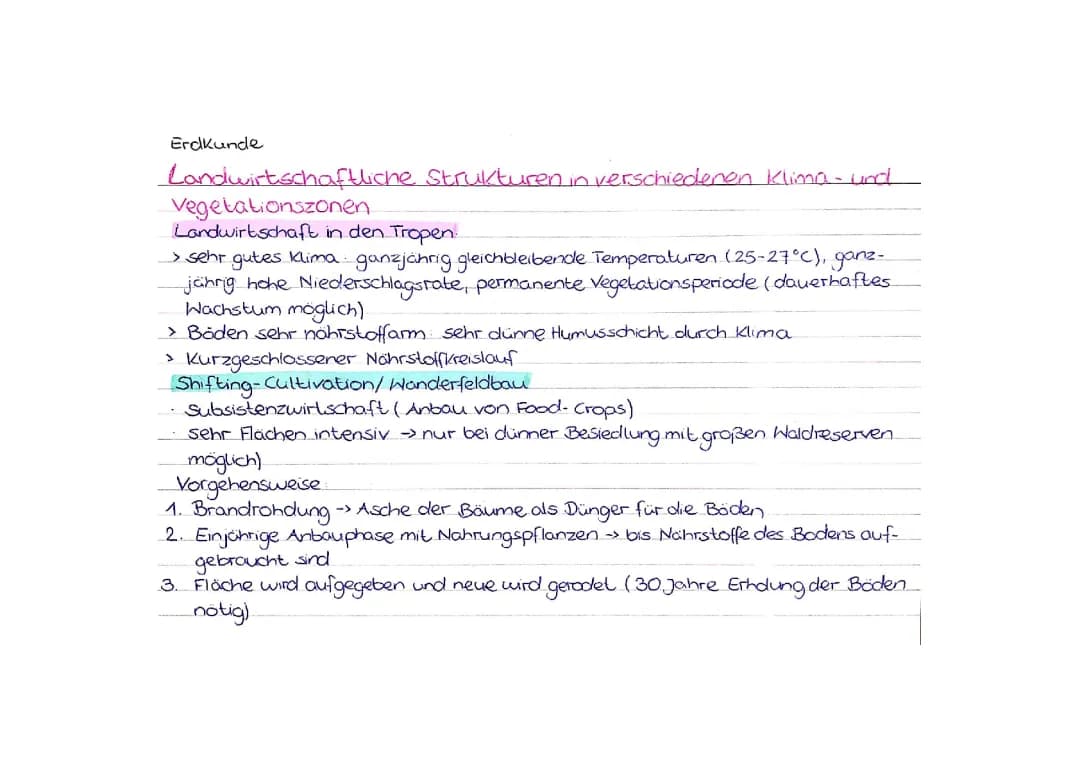 Erdkunde
Landwirtschaftliche Strukturen in verschiedenen Klima- und
Vegetationszonen
Landwirtschaft in den Tropen:
> sehr gutes Klima: ganzjährig gleichbleibende Temperaturen (25-27°C), ganz-
jährig hohe Niederschlagsrate, permanente Vegetationsperiode (dauerhaftes
Wachstum möglich)
> Böden sehr nährstoffarm: sehr dünne Humusschicht durch Klima
> Kurzgeschlossener Nährstoffkreislauf
Shifting-Cultivation/ Wanderfeldbau
· Subsistenzwirtschaft (Anbau von Food-Crops)
· sehr Flächen intensiv → nur bei dünner Besiedlung mit großen Waldreserven
möglich)
Vorgehensweise:
1. Brandrohdung -> Asche der Bäume als Dünger für die Böden
2. Einjährige Anbauphase mit Nahrungspflanzen -> bis Nährstoffe des Bodens auf-
gebraucht sind
3. Fläche wird aufgegeben und neue wird gerodet (30 Jahre Erholung der Böden
nötig)